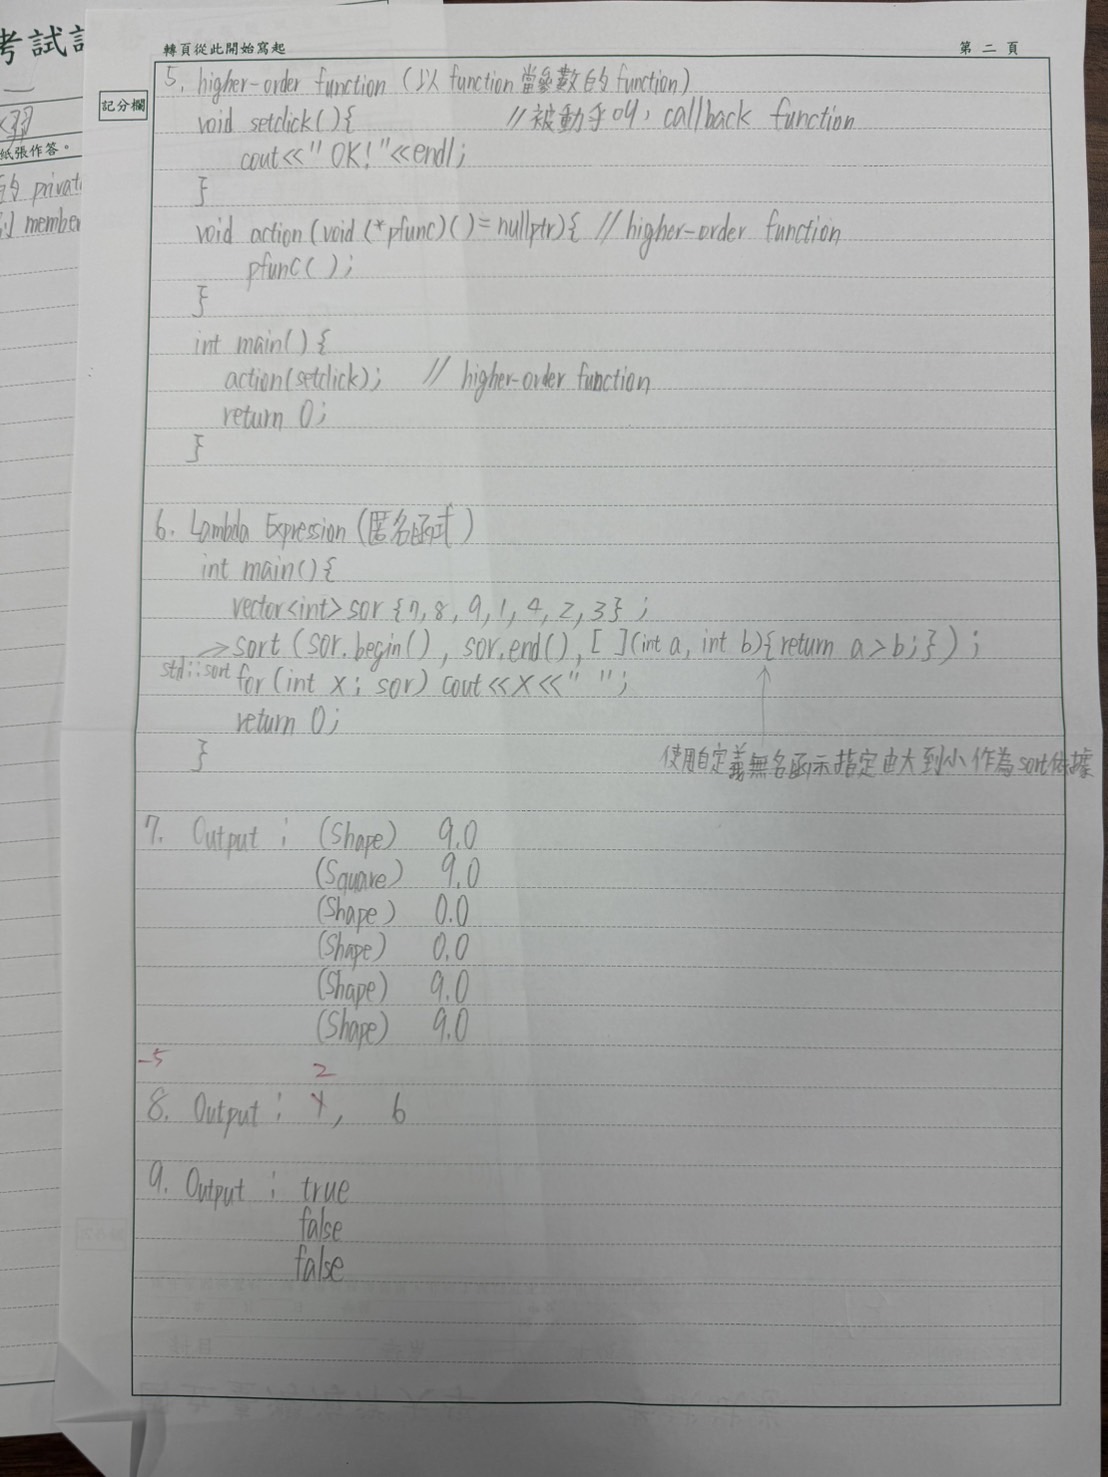 考試
轉頁從此開始寫起
第二頁
記分欄
紙張作答。
的 privat
member
5. higher-order function (以 function 當參數的 function)
void setclick(){ //被動呼叫, callback function
cout<<"OK!"<<endl;
}
void action(void (*pfunc)()=nullptr){ //higher-order function
pfunc();
}
int main(){
action(setclick); // higher-order function
return 0;
}
6. Lambda Expression (匿名函式)
int main(){
vector<int> sor {7,8,9,1,4,2,3};
sort (sor.begin(), sor.end(), [ ](int a, int b){return a>b;});
std::sort
for(int x: sor) cout<<x<<" ";
return 0;
}
使用自定義無名函示指定由大到小作為sort依據
7. Output: (Shape) 9.0
(Square) 9.0
(Shape) 0.0
(Shape) 0.0
(Shape) 9.0
(Shape) 9.0
-5
2
8. Output: , 6
9. Output: true
false
false